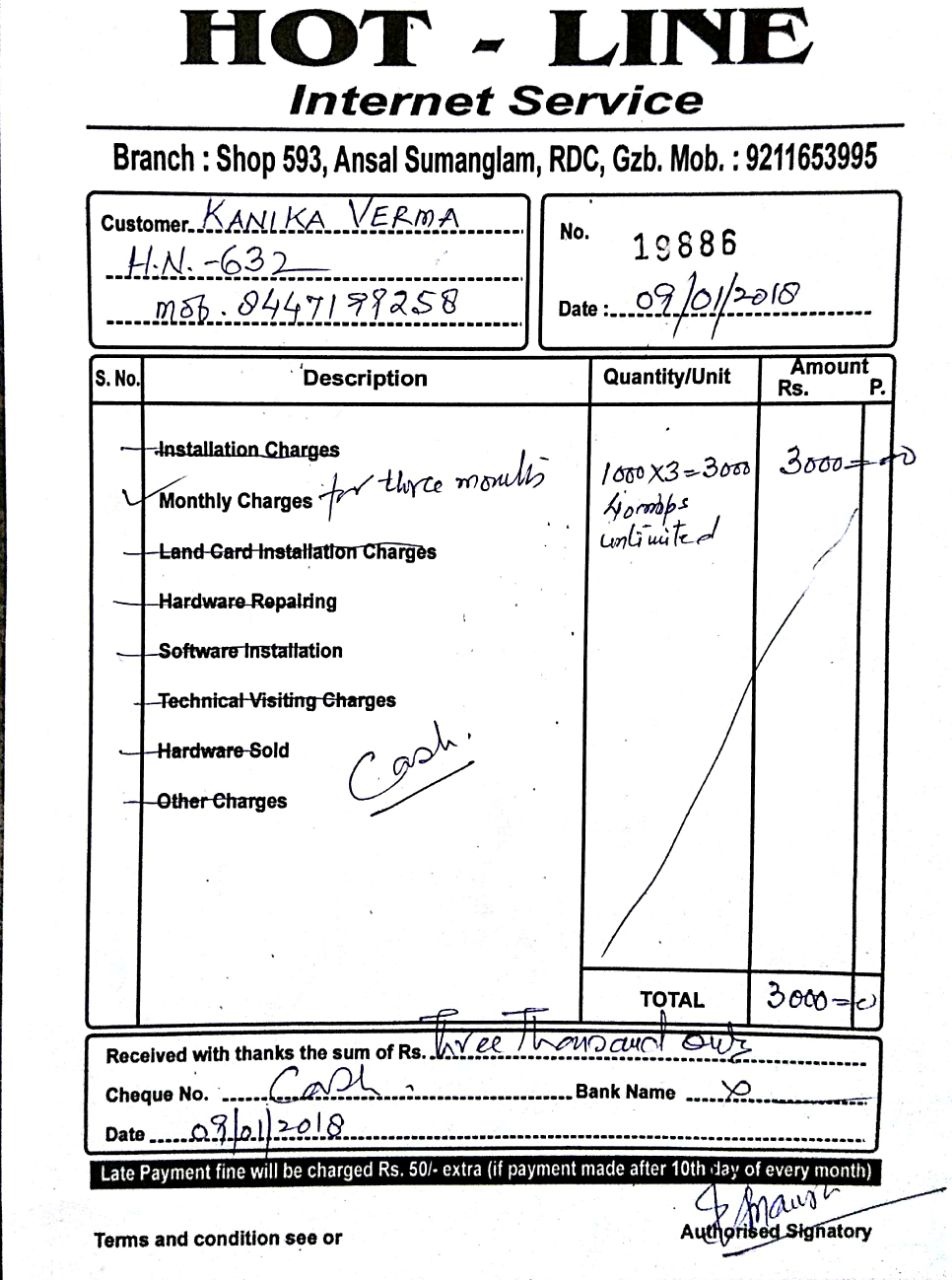 HOT - LINE
Internet Service
Branch : Shop 593, Ansal Sumanglam, RDC, Gzb. Mob. : 9211653995
Customer KANIKA VERMA
H.N.-632
mob. 8447199258
No. 19886
Date : 09/01/2018
S. No. Description Quantity/Unit Amount
Rs. P.
Installation Charges
Monthly Charges for three months 1000X3=3000 3000=00
40mbps
unlimited
Land Card Installation Charges
Hardware Repairing
Software Installation
Technical Visiting Charges
Hardware Sold
Cash.
Other Charges
TOTAL 3000=0
Received with thanks the sum of Rs. Three Thousand only
Cheque No. Cash. Bank Name X
Date 09/01/2018
Late Payment fine will be charged Rs. 50/- extra (if payment made after 10th day of every month)
Authorised Signatory
Terms and condition see or